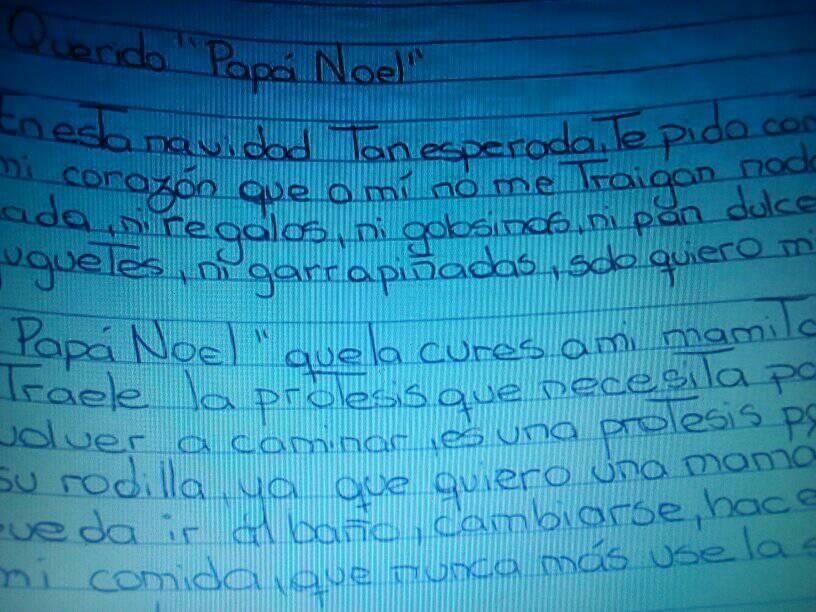 Querido "Papá Noel"
En esta navidad Tan esperada, Te pido con
mi corazón que a mí no me Traigan nada
ada, ni regalos, ni golosinas, ni pan dulce
uguetes, ni garrapiñadas, solo quiero mi
Papá Noel" que la cures a mi mamita
Traele la prótesis que necesita pa
volver a caminar, es una prótesis pa
su rodilla, ya que quiero una mama
ueda ir al baño, cambiarse, hace
mi comida, que nunca más use la s